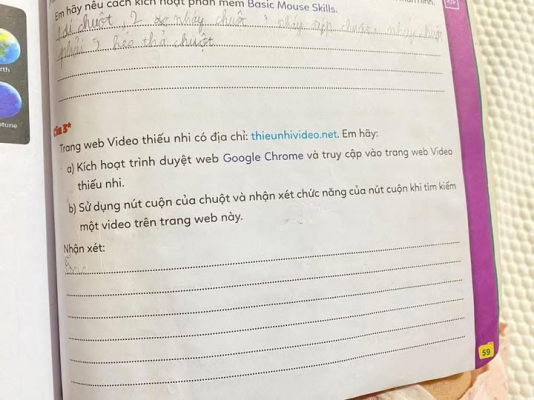 Em hãy nêu cách kích hoạt phần mềm Basic Mouse Skills.
chuột, 2 nháy chuột nháy chuột, nháy
phải 5 kéo thả chuột
rth
ptune
Câu 3*
Trang web Video thiếu nhi có địa chỉ: thieunhivideo.net. Em hãy:
a) Kích hoạt trình duyệt web Google Chrome và truy cập vào trang web Video
thiếu nhi.
b) Sử dụng nút cuộn của chuột và nhận xét chức năng của nút cuộn khi tìm kiếm
một video trên trang web này.
Nhận xét:
59